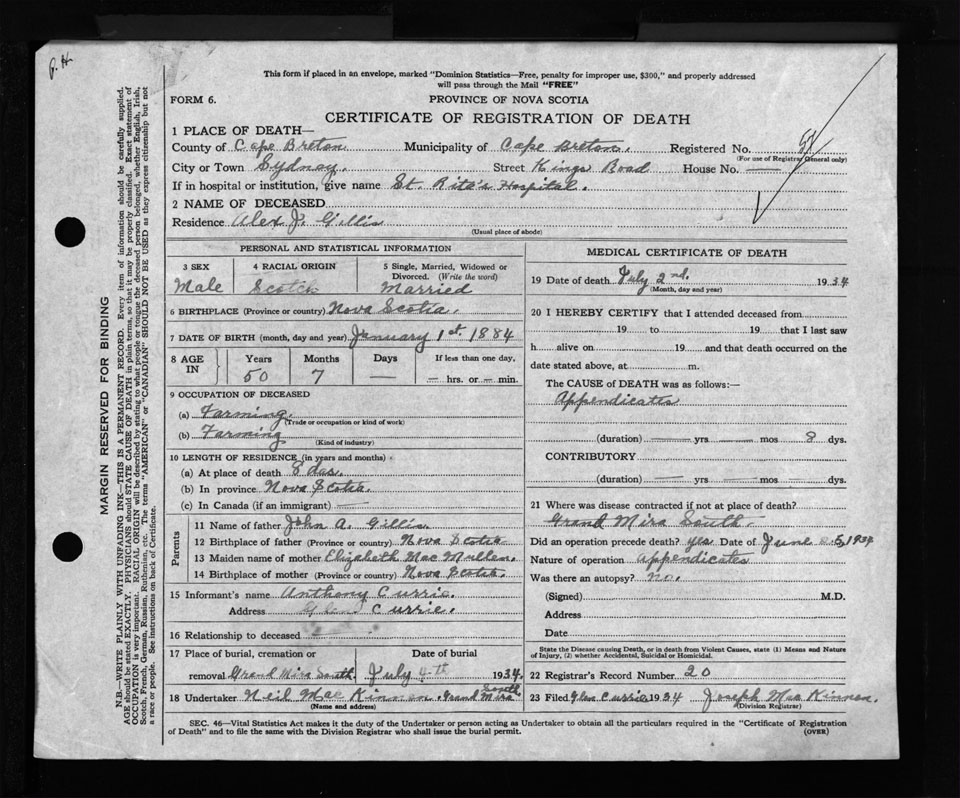 P. H.
This form if placed in an envelope, marked "Dominion Statistics—Free, penalty for improper use, $300," and properly addressed
will pass through the Mail "FREE"
FORM 6.
PROVINCE OF NOVA SCOTIA
CERTIFICATE OF REGISTRATION OF DEATH
1 PLACE OF DEATH—
County of Cape Breton Municipality of Cape Breton. Registered No.
(For use of Registrar General only)
City or Town Sydney. Street Kings Road House No. —
If in hospital or institution, give name St. Rita's Hospital.
2 NAME OF DECEASED
Residence Alex J. Gillis
(Usual place of abode)
PERSONAL AND STATISTICAL INFORMATION
3 SEX
Male
4 RACIAL ORIGIN
Scotch
5 Single, Married, Widowed or
Divorced. (Write the word)
Married
6 BIRTHPLACE (Province or country) Nova Scotia.
7 DATE OF BIRTH (month, day and year) January 1st 1884
8 AGE IN
Years
50
Months
7
Days
—
If less than one day,
— hrs. or — min.
9 OCCUPATION OF DECEASED
(a) Farming.
(Trade or occupation or kind of work)
(b) Farming
(Kind of industry)
10 LENGTH OF RESIDENCE (in years and months)
(a) At place of death 8 das.
(b) In province Nova Scotia.
(c) In Canada (if an immigrant) —
Parents
11 Name of father John A. Gillis.
12 Birthplace of father (Province or country) Nova Scotia
13 Maiden name of mother Elizabeth Mac Mullen.
14 Birthplace of mother (Province or country) Nova Scotia.
15 Informant's name Anthony Currie.
Address Currie.
16 Relationship to deceased
17 Place of burial, cremation or
removal Grand Mira South.
Date of burial
July 4th 1934.
18 Undertaker Neil Mac Kinnon Grand Mira South
(Name and address)
MEDICAL CERTIFICATE OF DEATH
19 Date of death July 2nd. 1934
(Month, day and year)
20 I HEREBY CERTIFY that I attended deceased from
19 to 19 that I last saw
h alive on 19 and that death occurred on the
date stated above, at m.
The CAUSE of DEATH was as follows:—
Appendicatis
(duration) — yrs — mos 8 dys.
CONTRIBUTORY
(duration) — yrs — mos — dys.
21 Where was disease contracted if not at place of death?
Grand Mira South.
Did an operation precede death? yes Date of June 1934
Nature of operation Appendicates
Was there an autopsy? no.
(Signed) M.D.
Address
Date
State the Disease causing Death, or in death from Violent Causes, state (1) Means and Nature
of Injury, (2) whether Accidental, Suicidal or Homicidal.
22 Registrar's Record Number 20
23 Filed Glen Currie 1934 Joseph Mac Kinnon.
(Division Registrar)
SEC. 46—Vital Statistics Act makes it the duty of the Undertaker or person acting as Undertaker to obtain all the particulars required in the "Certificate of Registration
of Death" and to file the same with the Division Registrar who shall issue the burial permit.
(OVER)
MARGIN RESERVED FOR BINDING
N.B.—WRITE PLAINLY WITH UNFADING INK—THIS IS A PERMANENT RECORD. Every item of information should be carefully supplied.
AGE should be stated EXACTLY. PHYSICIANS should STATE CAUSE OF DEATH in plain terms, so that it may be properly classified. Exact statement of
OCCUPATION is very important. RACIAL ORIGIN will be described by stating to what people or tongue the deceased person belonged, whether English, Irish,
Scotch, French, German, Russian, Ruthenian, etc. The terms "AMERICAN" or "CANADIAN" SHOULD NOT BE USED as they express citizenship but not
a race or people. See instructions on back of Certificate.